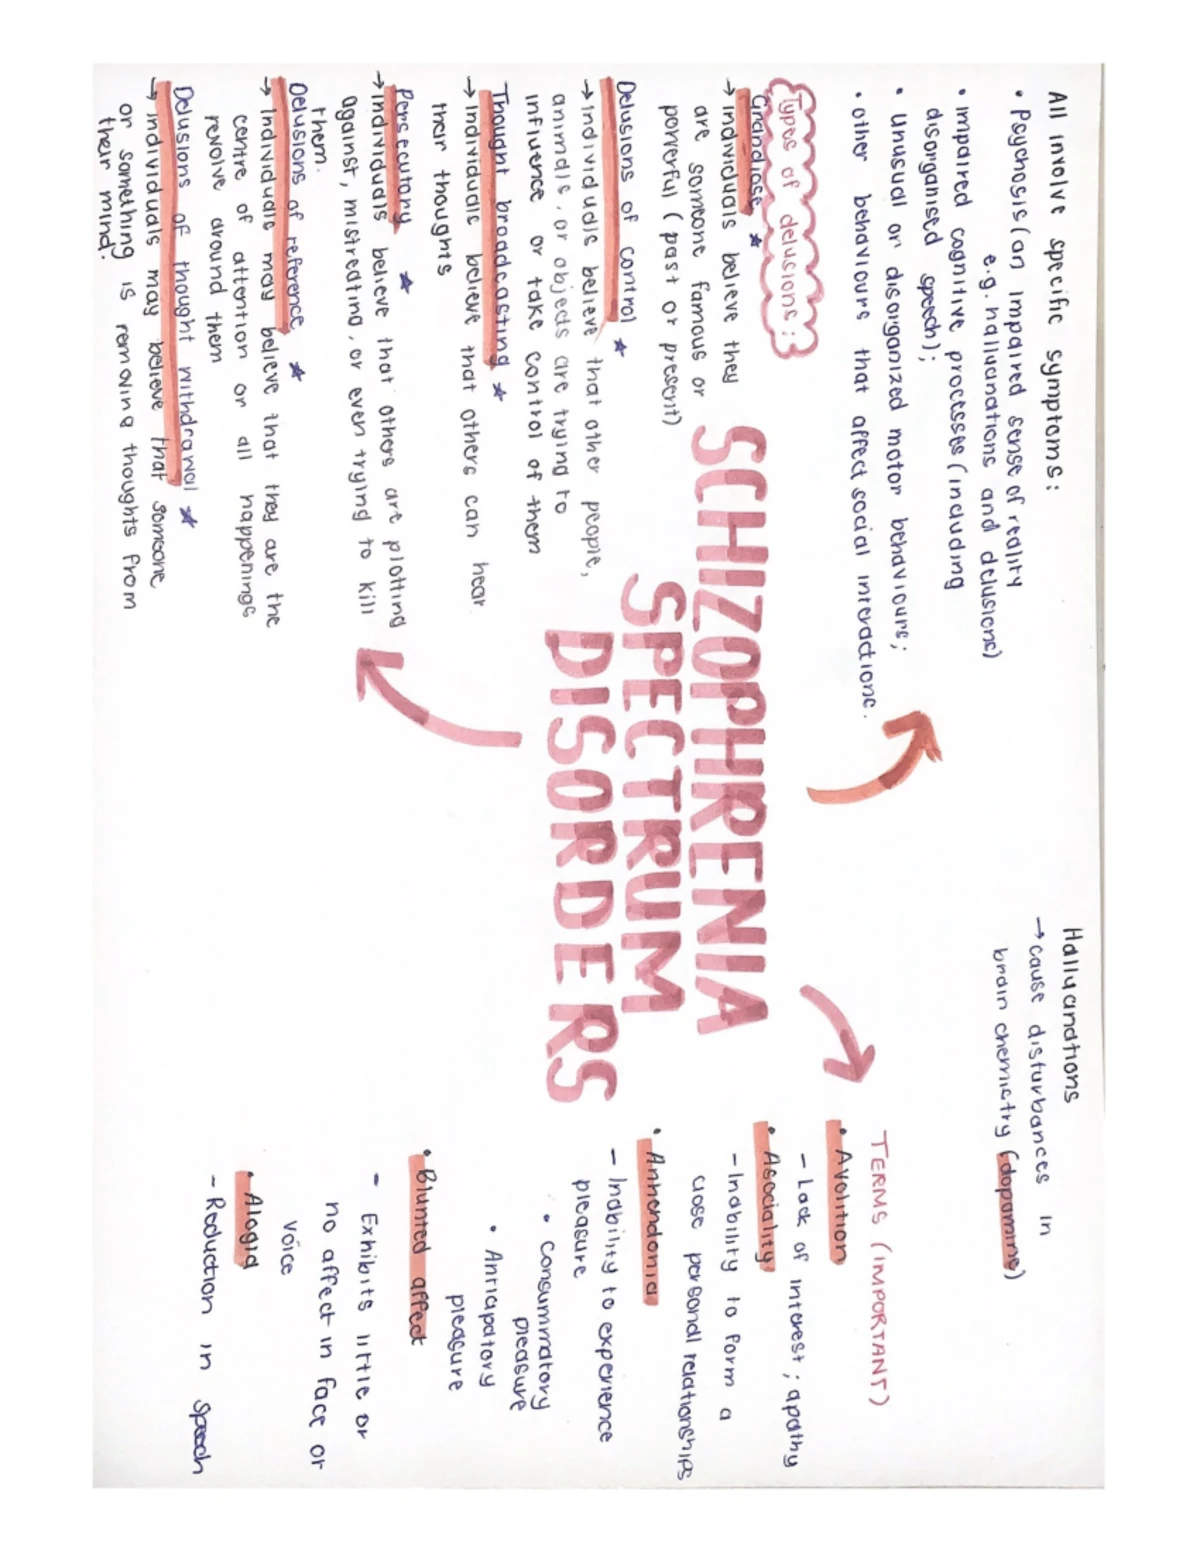 All involve specific symptoms:
• Psychosis (an impaired sense of reality
e.g. hallucinations and delusions)
• impaired cognitive processes (including
disorganised speech);
• unusual or disorganized motor behaviours;
• other behaviours that affect social interactions.
Types of delusions:
Grandiose ★
→ individuals believe they
are someone famous or
powerful (past or present)
Delusions of control ★
→ individuals believe that other people,
animals, or objects are trying to
influence or take control of them
Thought broadcasting ★
→ individuals believe that others can hear
their thoughts
Persecutory ★
→ individuals believe that others are plotting
against, mistreating, or even trying to kill
them.
Delusions of reference ★
→ individuals may believe that they are the
centre of attention or all happenings
revolve around them
Delusions of thought withdrawal ★
→ individuals may believe that someone
or something is removing thoughts from
their mind.
SCHIZOPHRENIA
SPECTRUM
DISORDERS
Hallucinations
→ cause disturbances in
brain chemistry (dopamine)
TERMS (IMPORTANT)
• Avolition
- Lack of interest; apathy
• Asociality
- Inability to form a
close personal relationships
• Anhendonia
- Inability to experience
pleasure
• Consummatory
pleasure
• Anticipatory
pleasure
• Blunted affect
- Exhibits little or
no affect in face or
voice
• Alogia
- Reduction in speech